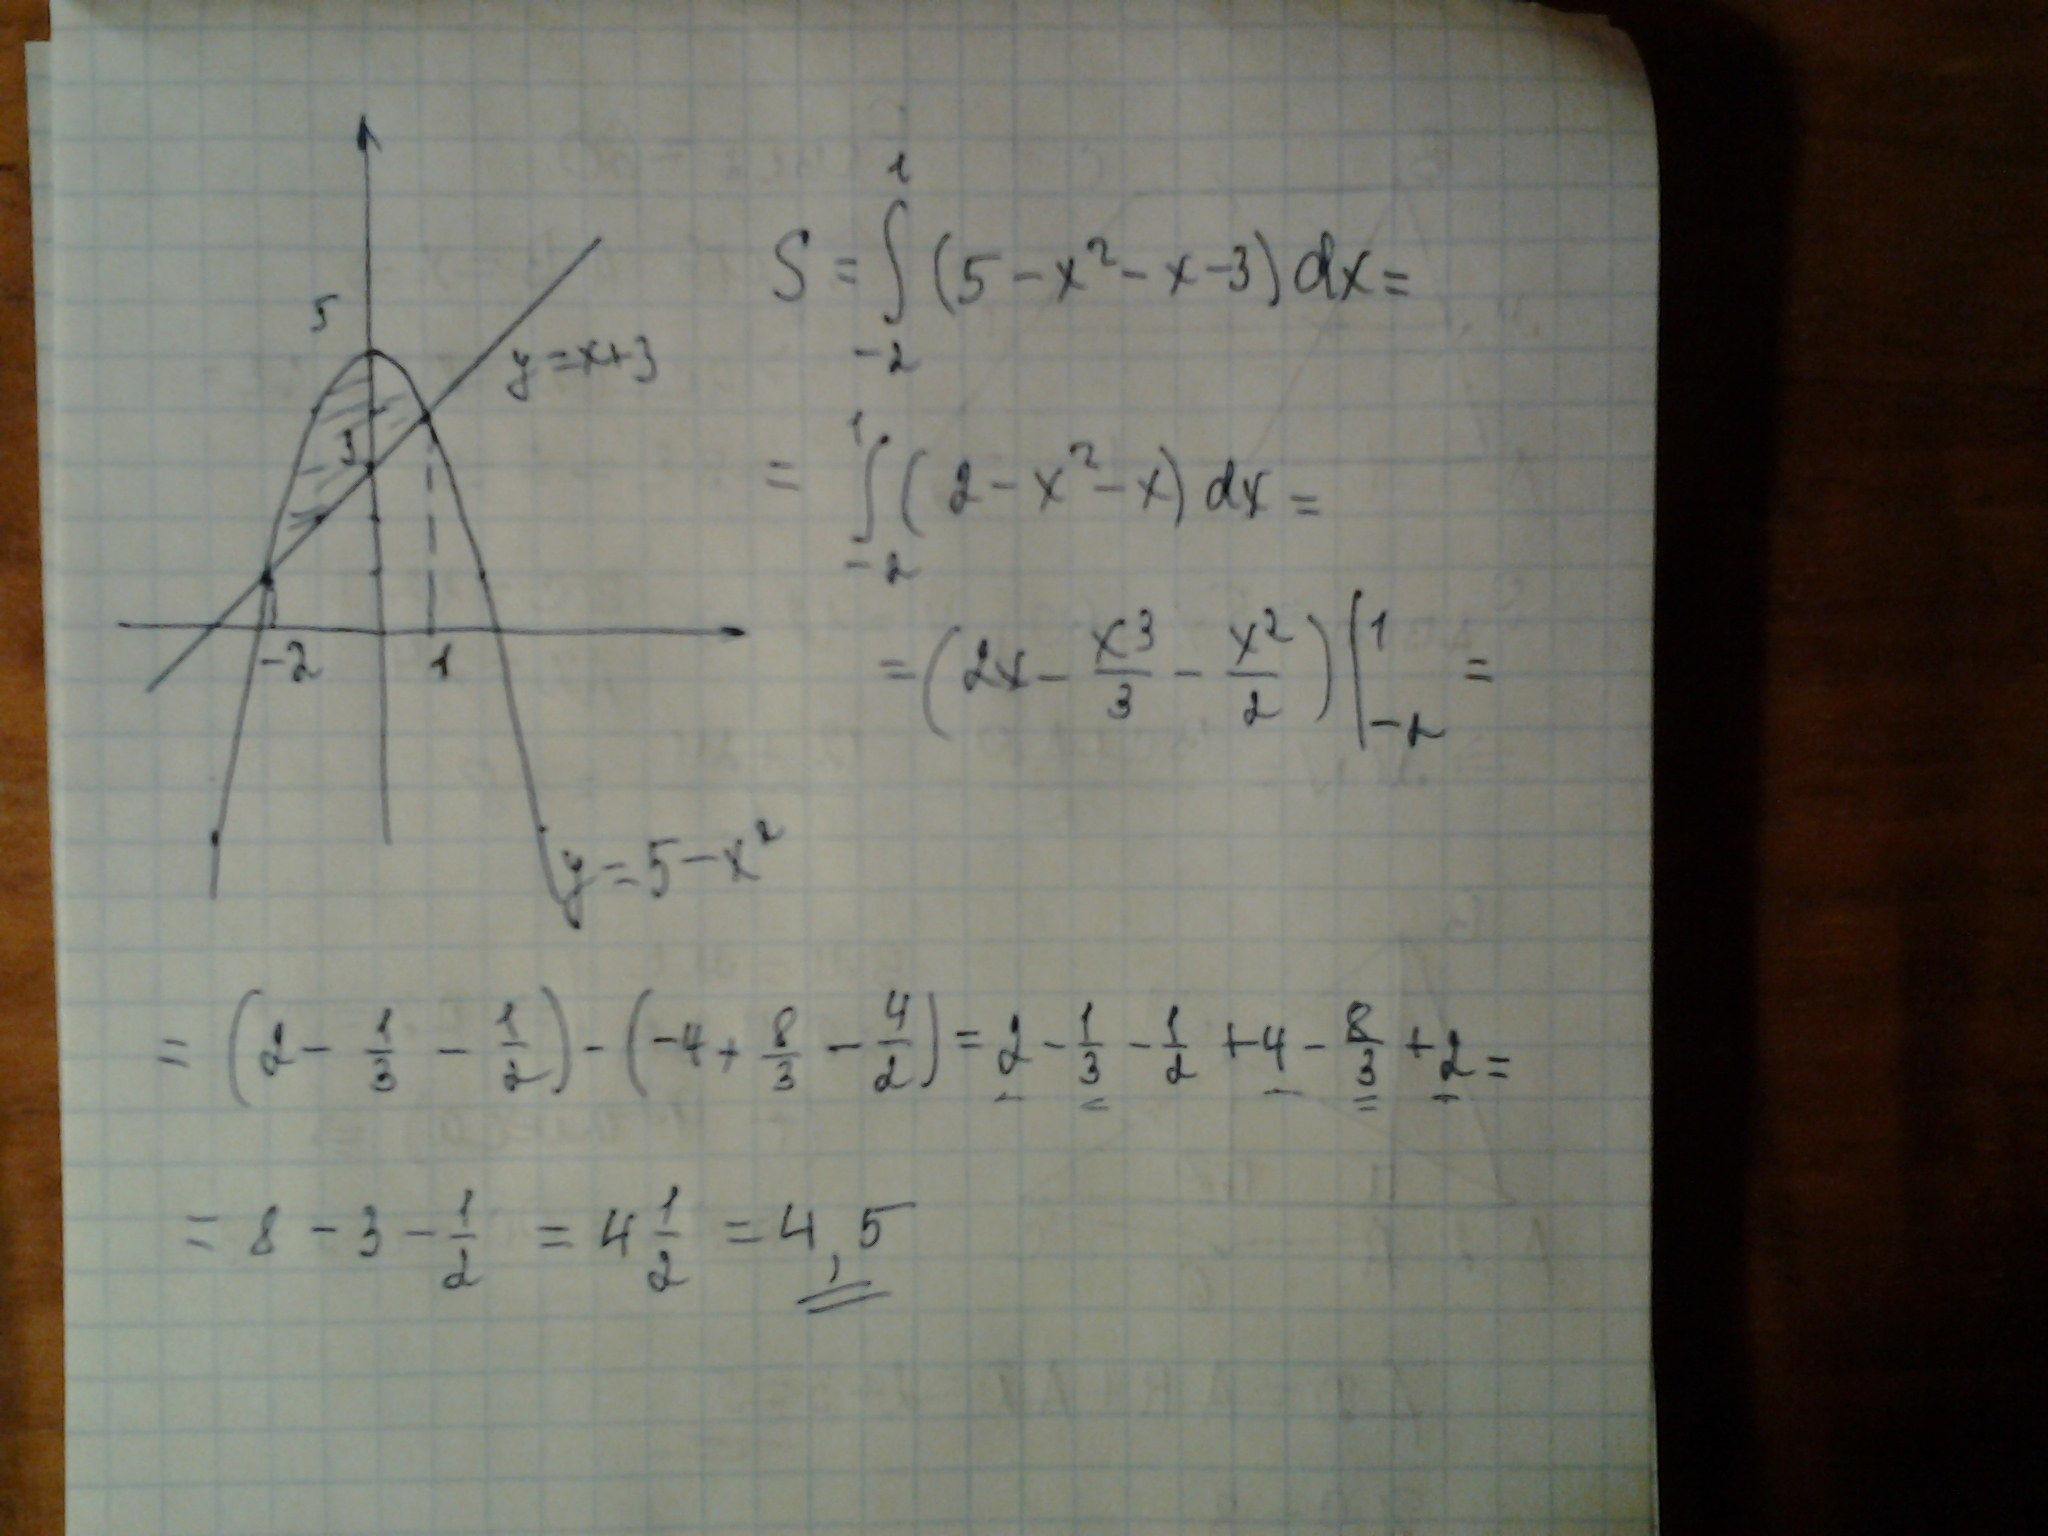 5
y=x+3
3
-2 1
y=5-x²
S = ∫₋₂¹ (5-x²-x-3)dx=
= ∫₋₂¹ (2-x²-x)dx=
=(2x - x³/3 - x²/2)|₋₂¹ =
= (2 - 1/3 - 1/2) - (-4 + 8/3 - 4/2) = 2 - 1/3 - 1/2 + 4 - 8/3 + 2 =
= 8 - 3 - 1/2 = 4 1/2 = 4,5